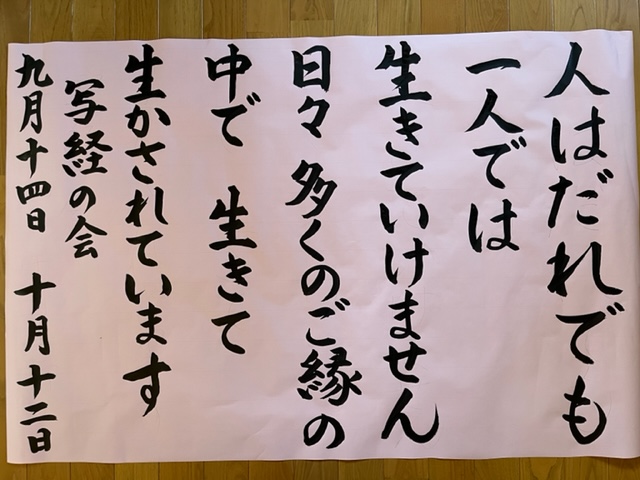 人はだれでも
一人では
生きていけません
日々 多くのご縁の
中で 生きて
生かされています
写経の会
九月十四日 十月十二日